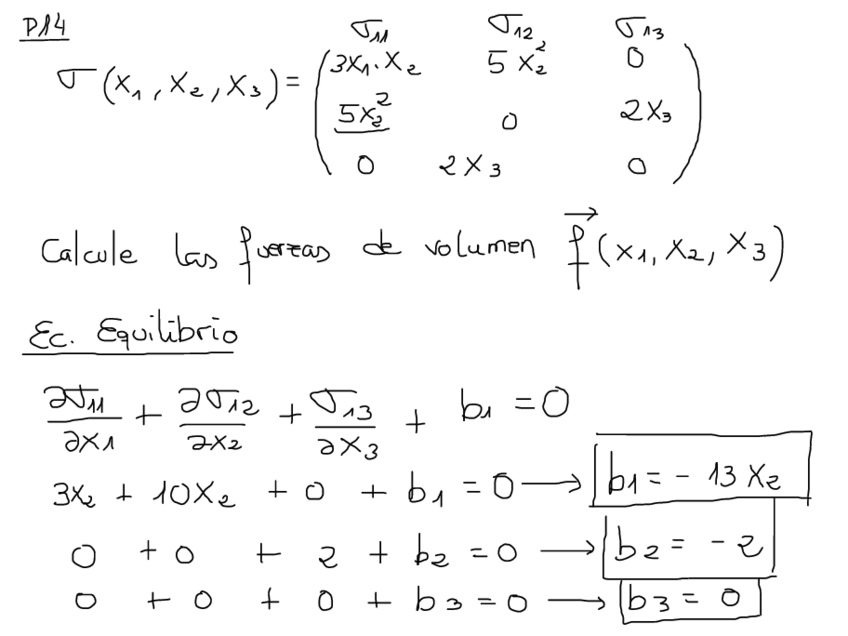 P14
σ11 σ12 σ13
σ(x1, x2, x3) = (3x1·x2 5x2² 0
5x2² 0 2x3
0 2x3 0)
Calcule las fuerzas de volumen f⃗(x1, x2, x3)
Ec. Equilibrio
∂σ11/∂x1 + ∂σ12/∂x2 + σ13/∂x3 + b1 = 0
3x2 + 10x2 + 0 + b1 = 0 → b1 = - 13x2
0 + 0 + 2 + b2 = 0 → b2 = - 2
0 + 0 + 0 + b3 = 0 → b3 = 0